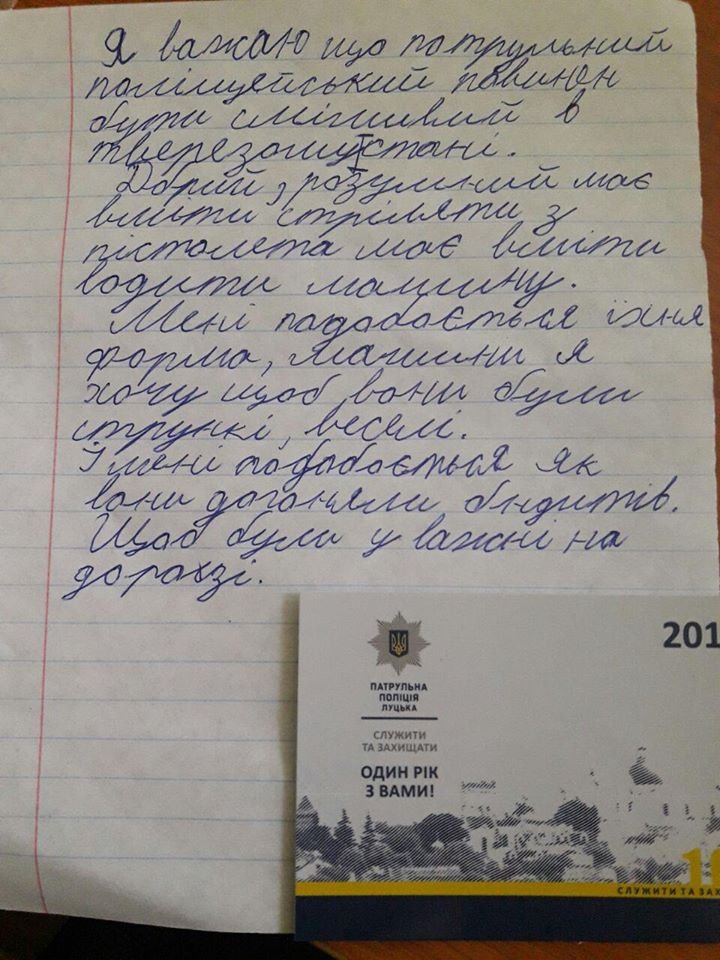 Я важаю що патрульний
поліцейський повинен
бути сміливий в
тверезому стані.
Добрий, розумний має
вміти стріляти з
пістолета має вміти
водити машину.
Мені подобається їхня
форма, машини я
хочу щоб вони були
стрункі, веселі.
І мені подобається як
вони доганяли бндитів.
Щоб були уважні на
дорозі.
201
ПАТРУЛЬНА
ПОЛІЦІЯ
ЛУЦЬКА
СЛУЖИТИ
ТА ЗАХИЩАТИ
ОДИН РІК
З ВАМИ!
СЛУЖИТИ ТА ЗАХ